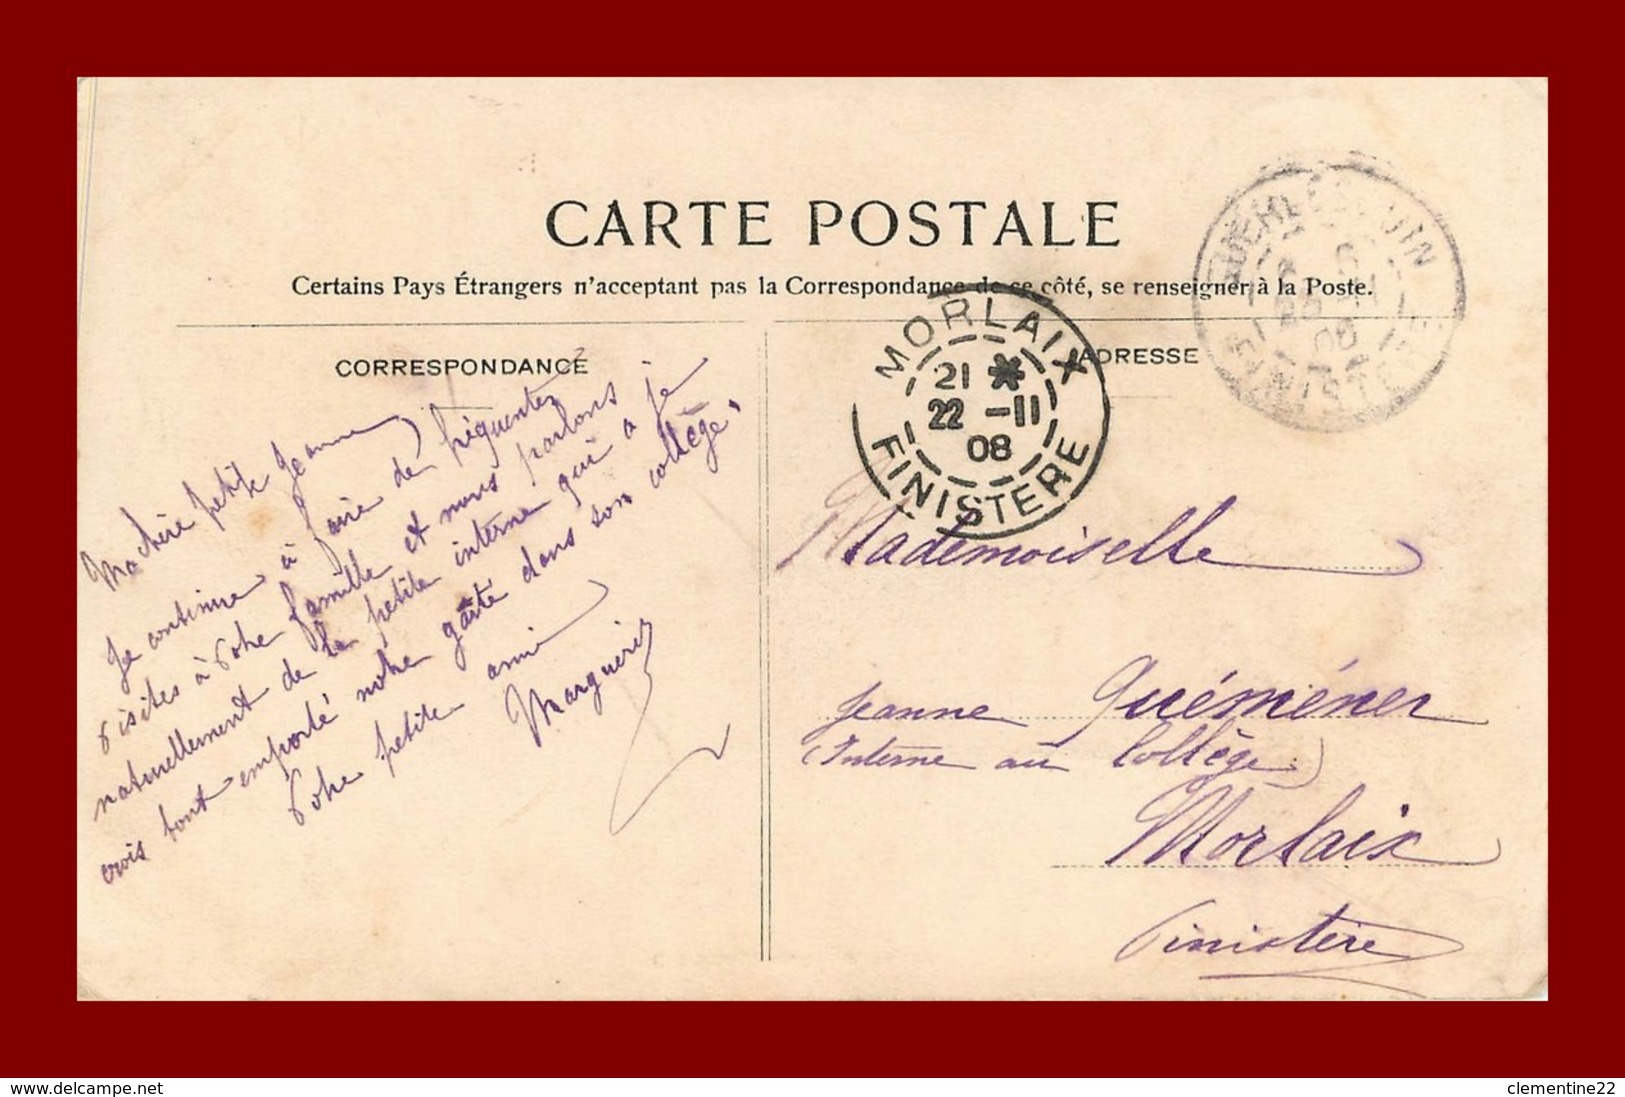 CARTE POSTALE
Certains Pays Étrangers n'acceptant pas la Correspondance de ce côté, se renseigner à la Poste.
CORRESPONDANCE
Ma chère petite Jeanne
Je continue à faire de fréquentes
visites à votre famille et nous parlons
naturellement de la petite interne qui a je
crois tout emporté notre gâité dans son collège.
Votre petite amie
Marguerite
ADRESSE
MORLAIX
21 *
22 -11
08
FINISTERE
FINISTERE
08
Mademoiselle
Jeanne Quéméner
(Interne au Collège)
Morlaix
Finistère
www.delcampe.net
clementine22